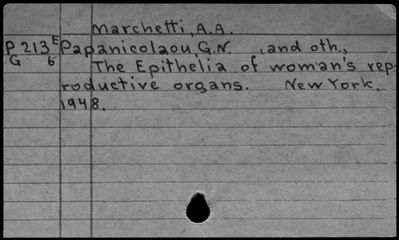 Marchetti, A.A.
P 213 E Papanicolaou, G.N. , and oth.,
G 6 The Epithelia of woman's rep-
roductive organs. New York,
1948.